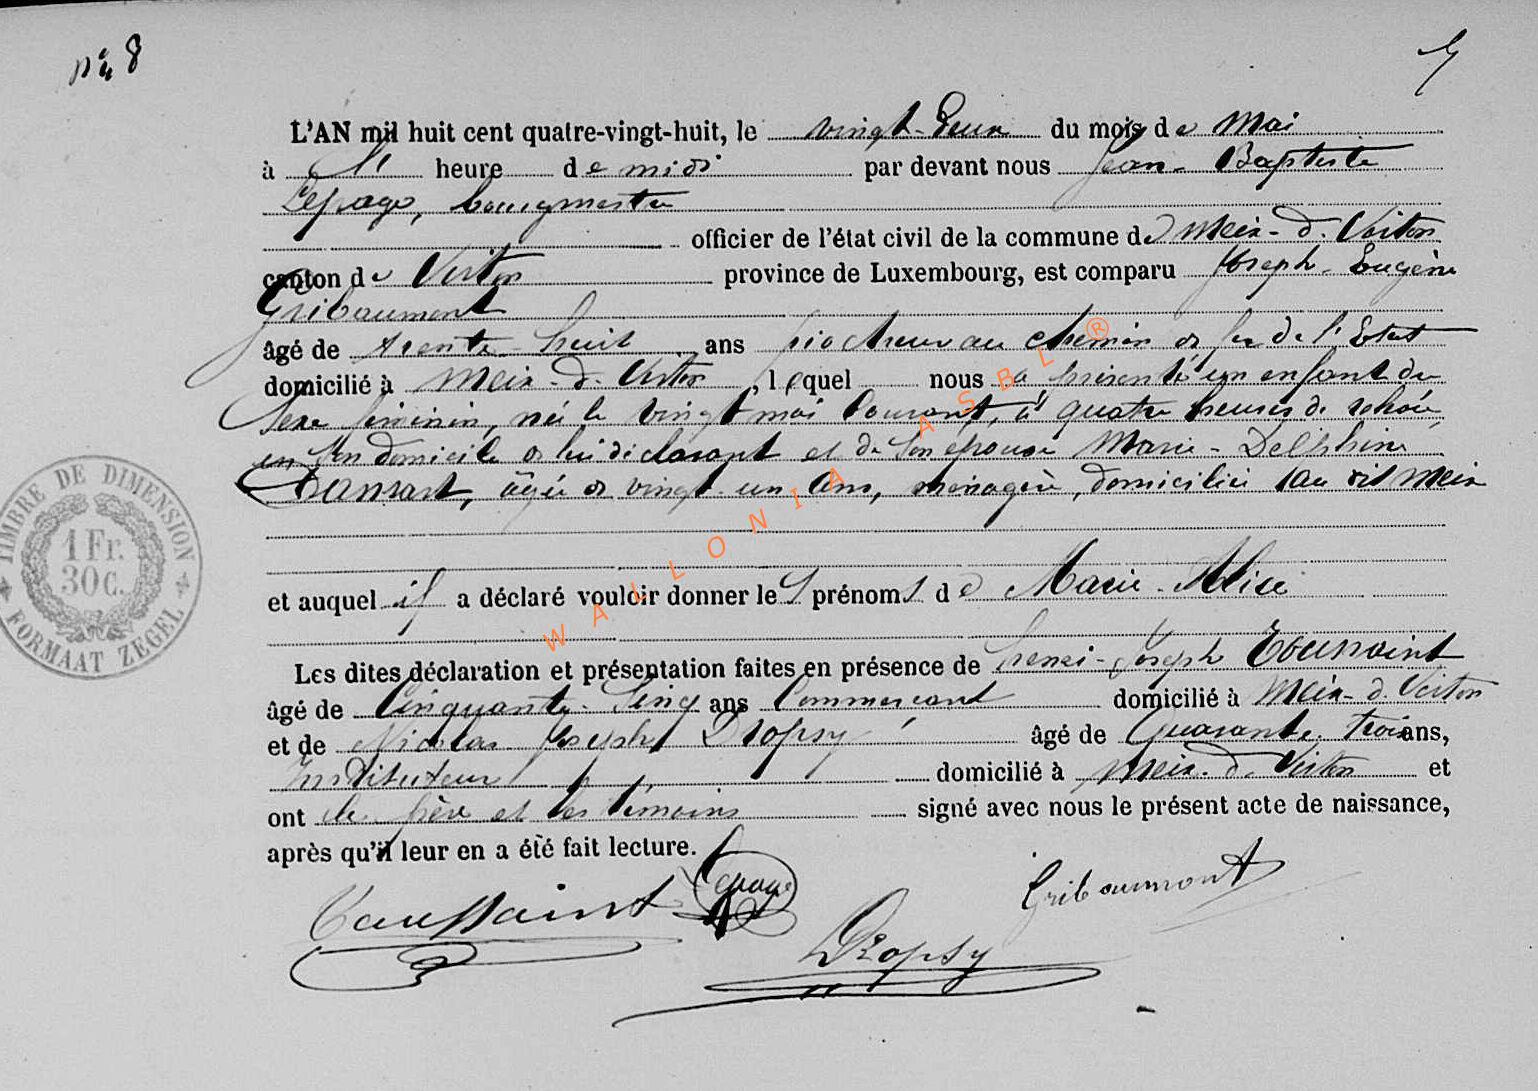 n° 8
5
L'AN mil huit cent quatre-vingt-huit, le vingt-deux du mois de Mai
à heure de midi par devant nous Jean-Baptiste
Lepage, bourgmestre
officier de l'état civil de la commune de Meix-d-Virton
canton de Virton province de Luxembourg, est comparu Joseph-Eugène
Gribaumont
âgé de trente-huit ans piocheur au chemin de fer de l'Etat
domicilié à Meix-d-Virton, lequel nous a présenté un enfant du
sexe féminin, née le vingt mai courant, à quatre heures de relevée,
en son domicile de lui déclarant et de son épouse Marie-Delphine
Dansart, âgée de vingt-un ans, ménagère, domiciliée au dit Meix
et auquel il a déclaré vouloir donner les prénoms de Marie-Alice
Les dites déclaration et présentation faites en présence de Henri-Joseph Toussaint
âgé de Cinquante-cinq ans Commerçant domicilié à Meix-d-Virton
et de Nicolas Joseph Dropsy âgé de Quarante-trois ans,
Instituteur domicilié à Meix-d-Virton et
ont le père et les témoins signé avec nous le présent acte de naissance,
après qu'il leur en a été fait lecture.
Toussaint Lepage Gribaumont
Dropsy
TIMBRE DE DIMENSION
1 Fr.
30 C.
FORMAAT ZEGEL
WALLONIA ASBL ®